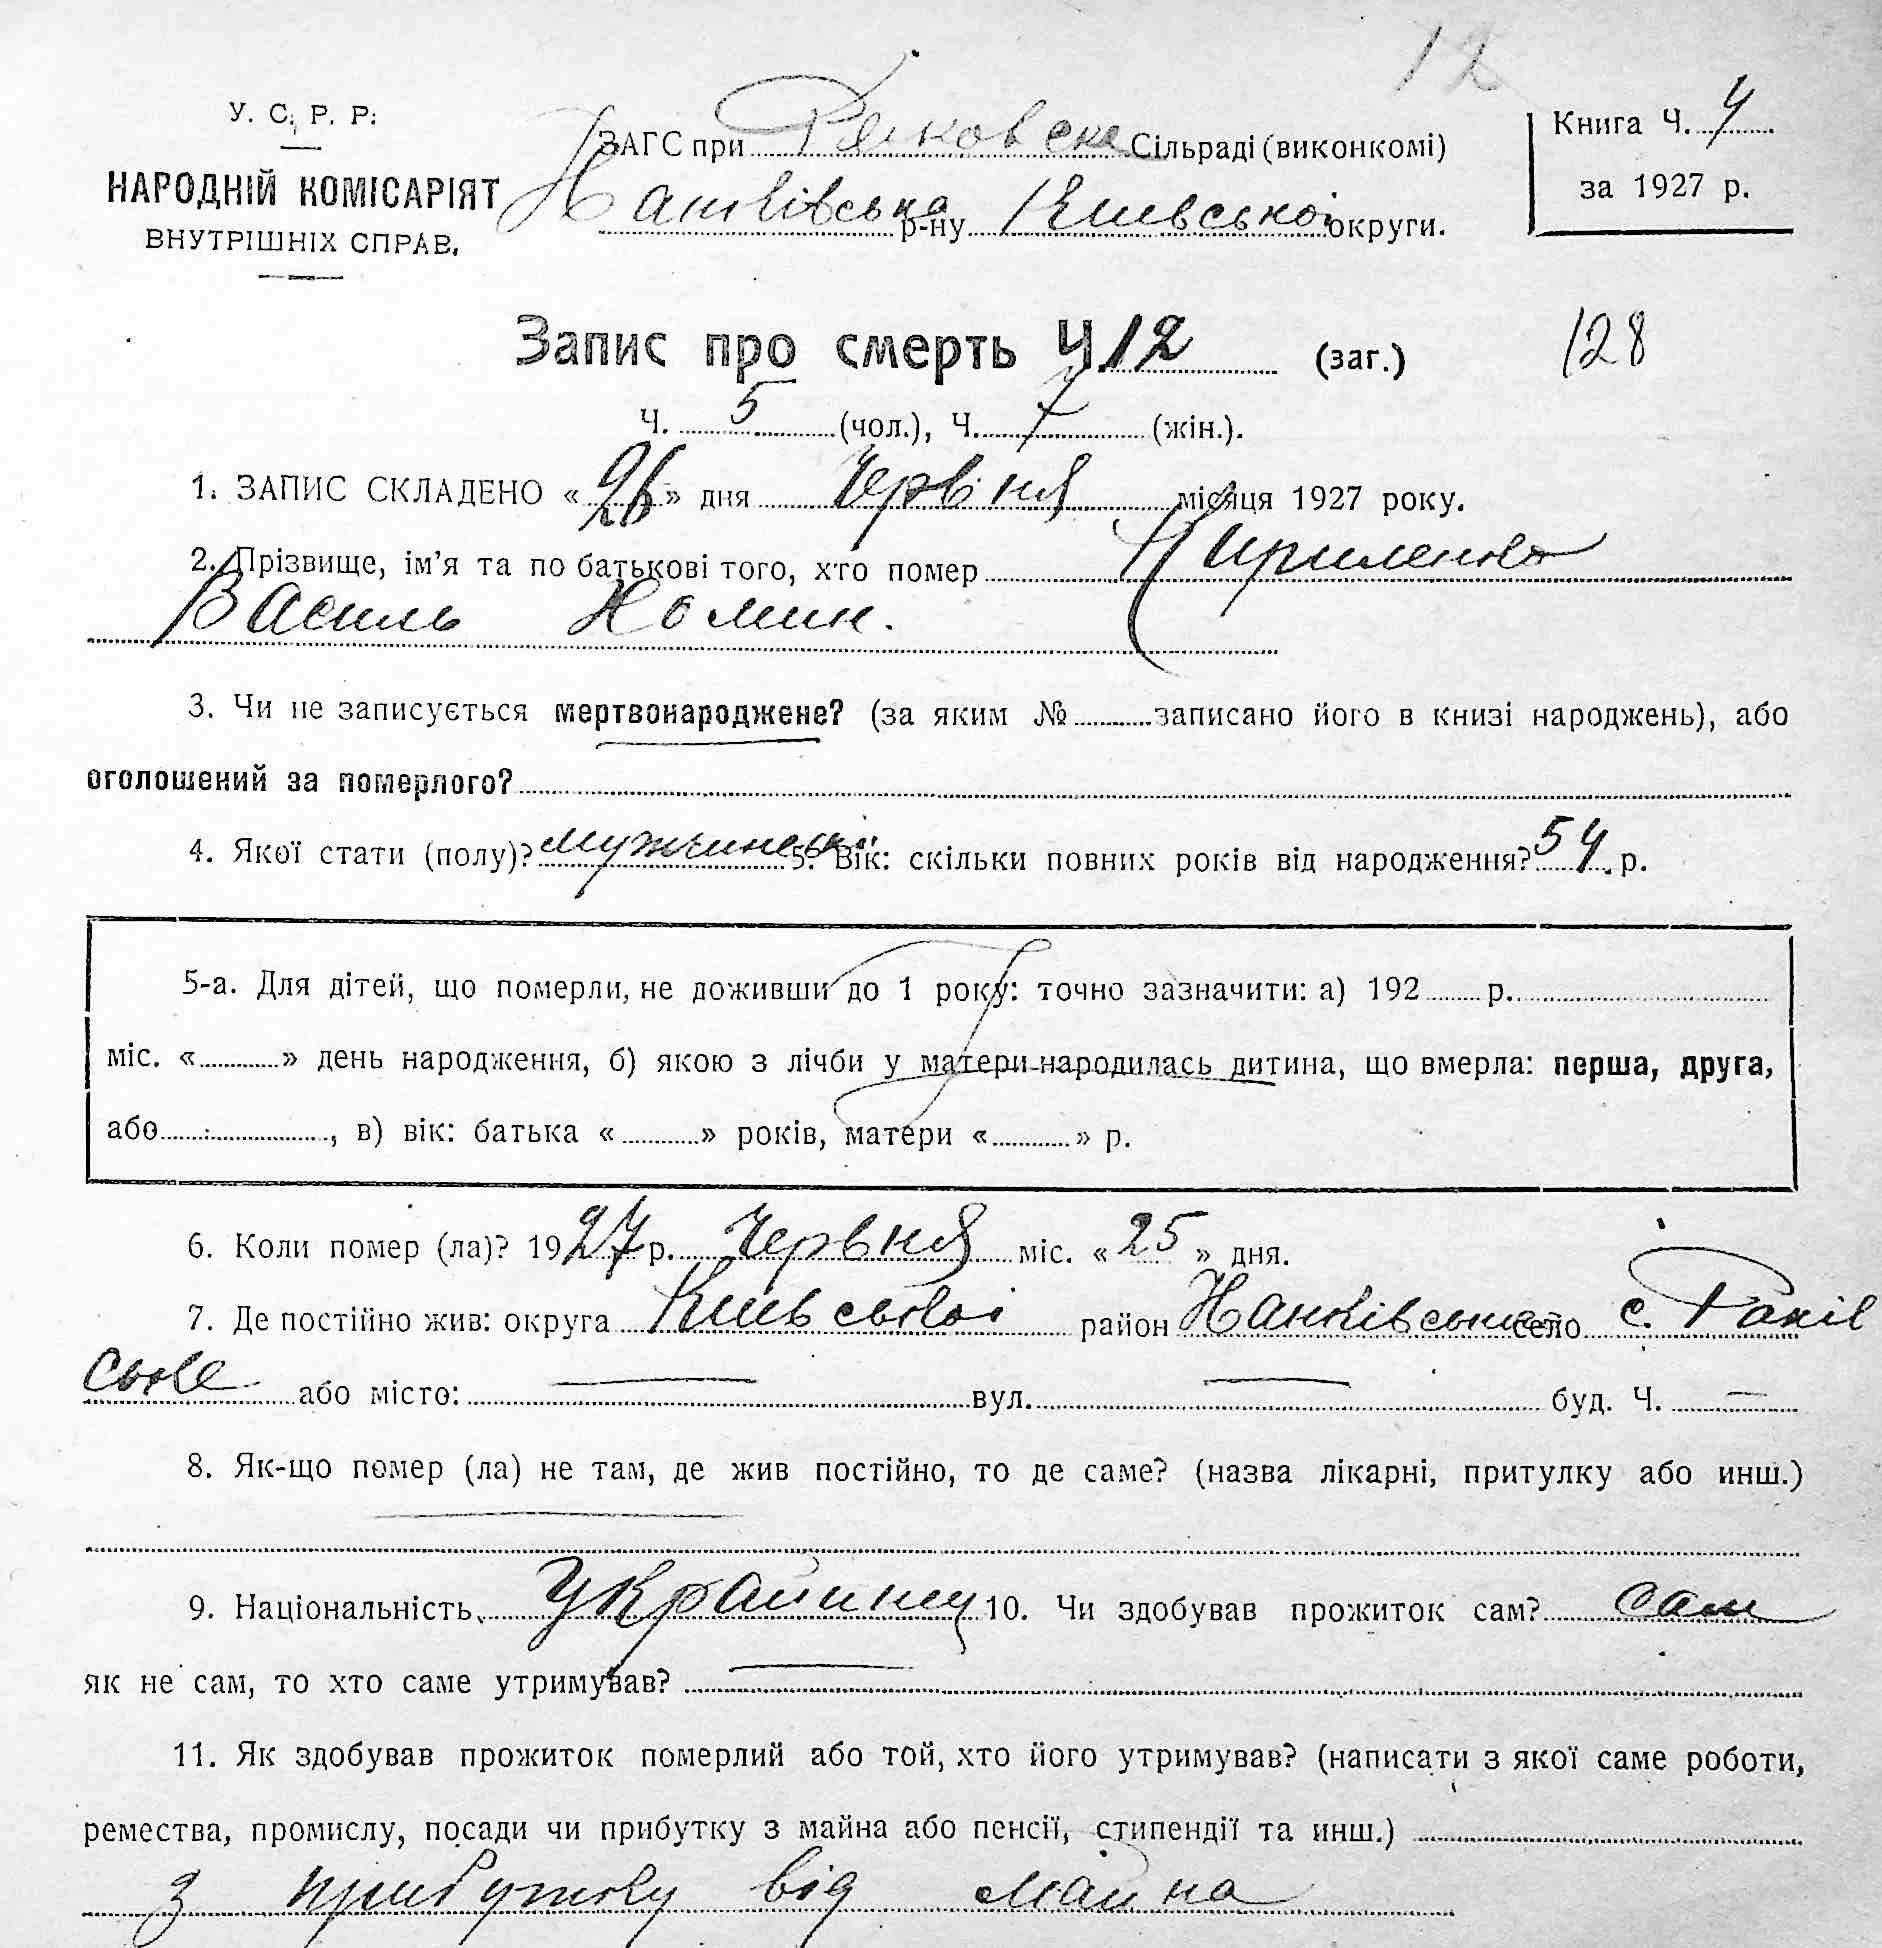 12
У. С. Р. Р.
НАРОДНІЙ КОМІСАРІЯТ
ВНУТРІШНІХ СПРАВ.
ЗАГС при Раковска Сільраді (виконкомі)
р-ну Київської округи.
Книга Ч. 4
за 1927 р.
Запис про смерть Ч. 12 (заг.)
128
Ч. 5 (чол.), Ч. 7 (жін.).
1. ЗАПИС СКЛАДЕНО «26» дня Червня місяця 1927 року.
2. Прізвище, ім'я та по батькові того, хто помер Кириленко
Василь Хомич.
3. Чи не записується мертвонароджене? (за яким № записано його в книзі народжень), або
оголошений за померлого?
4. Якої стати (полу)? 5. Вік: скільки повних років від народження? 54 р.
5-а. Для дітей, що померли, не доживши до 1 року: точно зазначити: а) 192 р.
міс. « » день народження, б) якою з лічби у матери народилась дитина, що вмерла: перша, друга,
або , в) вік: батька « » років, матери « » р.
6. Коли помер (ла)? 1927 р. Червня міс. «25» дня.
7. Де постійно жив: округа Київської район село с. Раків
ське або місто: — вул. — буд. Ч. —
8. Як-що помер (ла) не там, де жив постійно, то де саме? (назва лікарні, притулку або инш.)
9. Національність Українец 10. Чи здобував прожиток сам? сам
як не сам, то хто саме утримував? —
11. Як здобував прожиток померлий або той, хто його утримував? (написати з якої саме роботи,
ремества, промислу, посади чи прибутку з майна або пенсії, стипендії та инш.)
з прибутку від майна